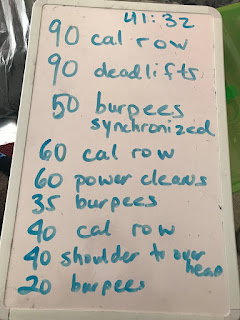 41:32
90 cal row
90 deadlifts
50 burpees
synchronized
60 cal row
60 power cleans
35 burpees
40 cal row
40 shoulder to over
head
20 burpees